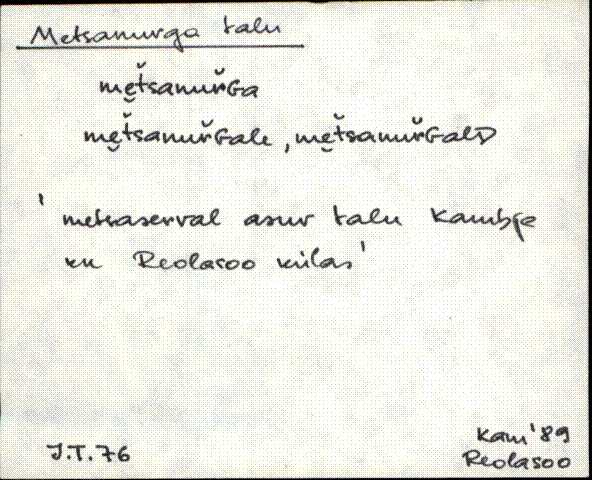 Metsanurga talu
me̮t̆sanur̆Ga
me̮t̆sanur̆Gale, me̮t̆sanur̆GalD
'metsaserval asuv talu Kambja
kn Reolasoo külas'
J.T.76
Kam '89
Reolasoo